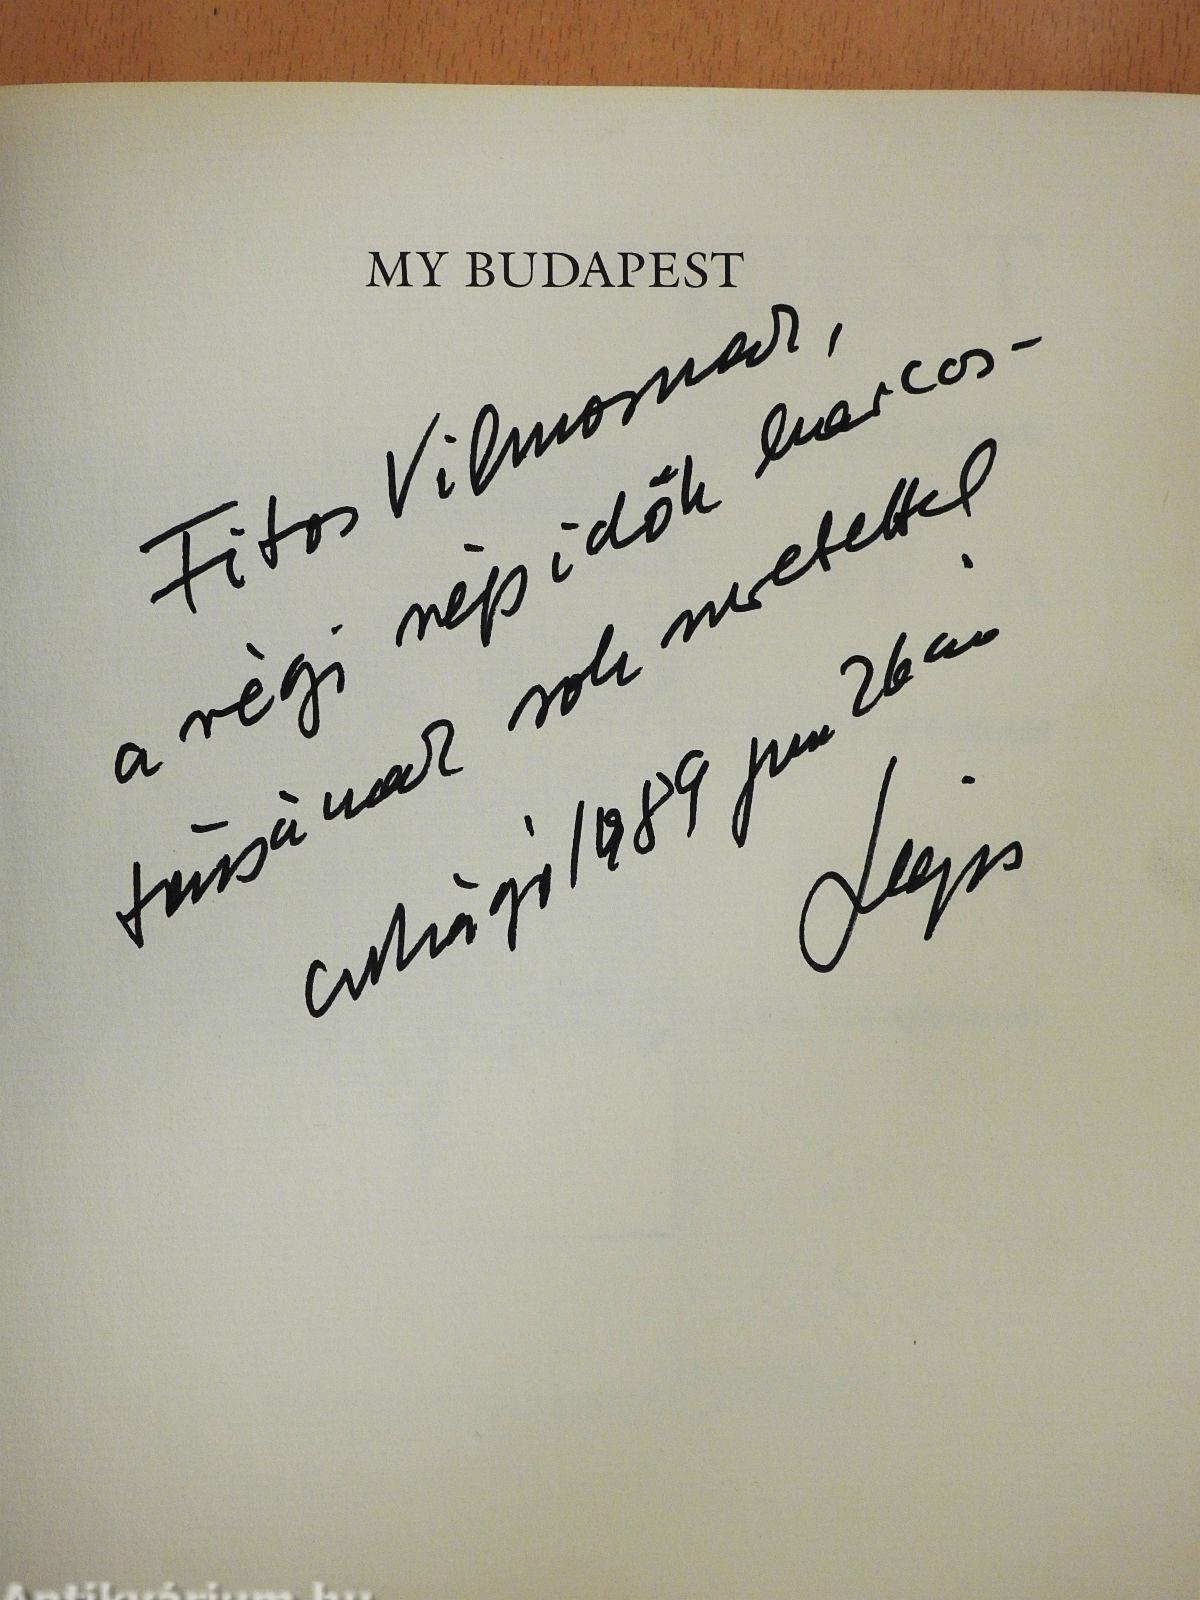 MY BUDAPEST
Fitos Vilmosnak,
a régi szép idők harcos-
társának sok szeretettel
Csillaghegy 1989 jun 26 án
Antikvárium.hu